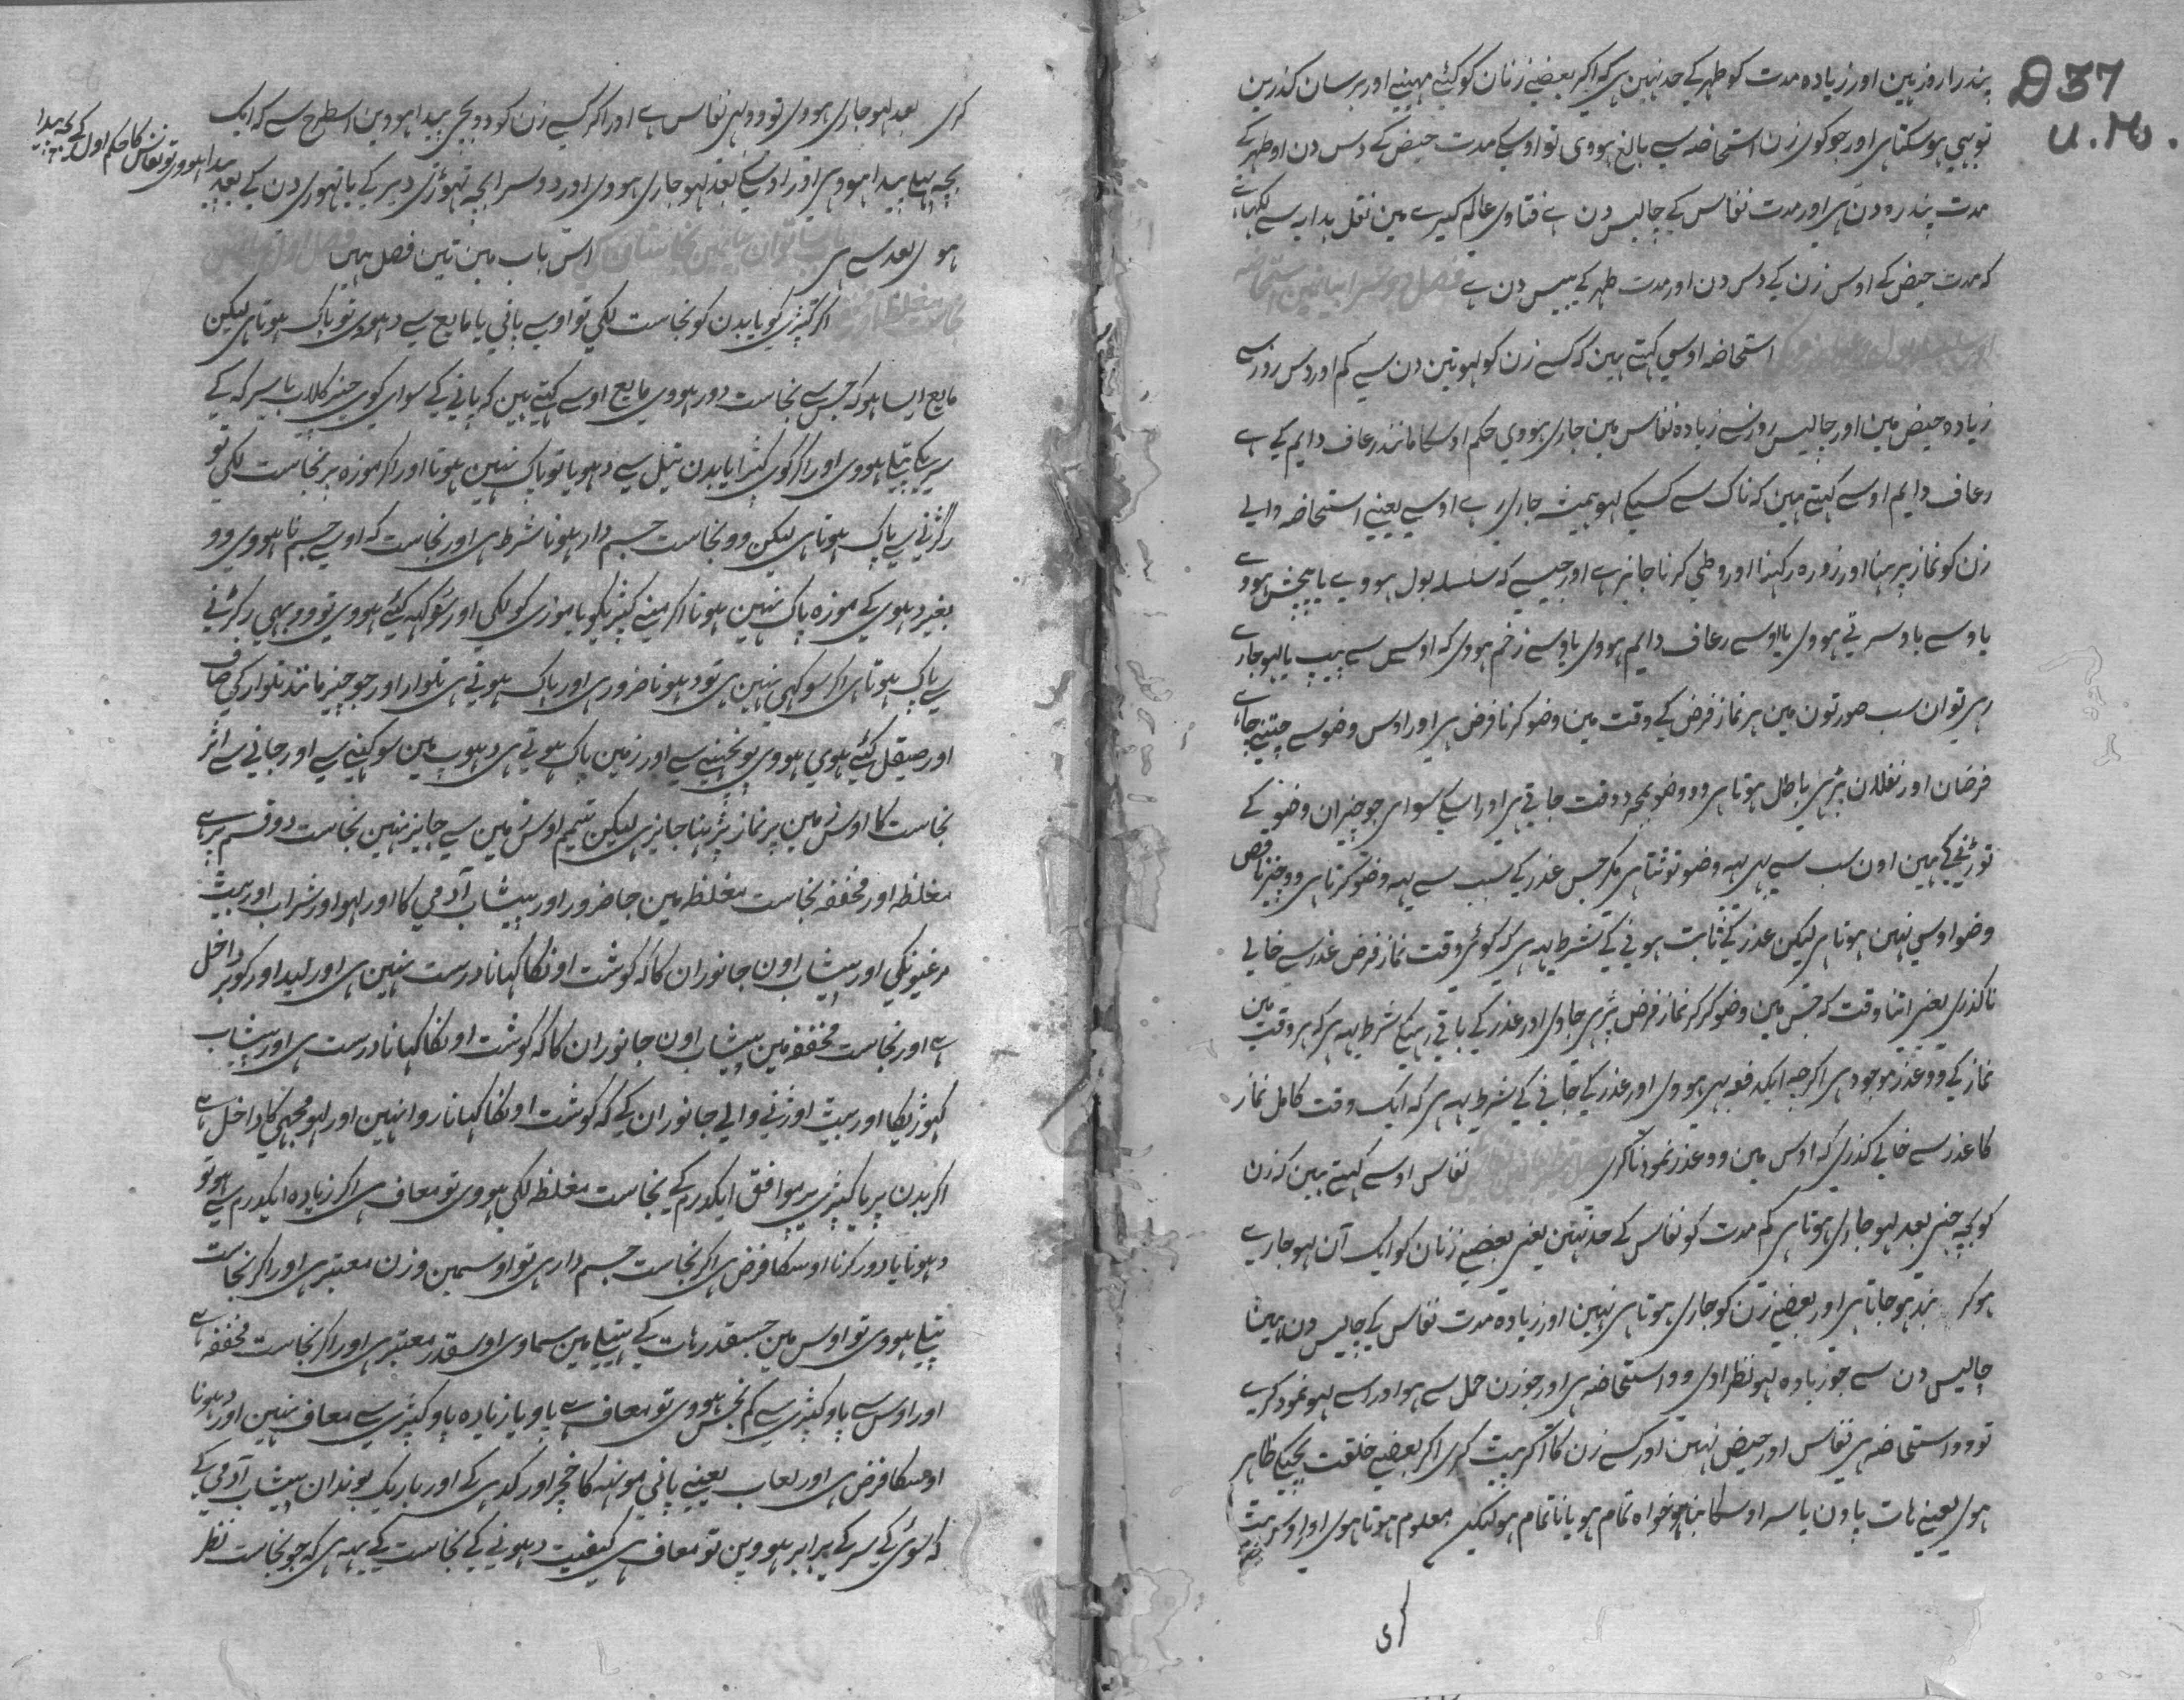 D 37
U. M.
پندرا روز ہین اور زیادہ مدت کو طہر کے حد نہین ہی کہ اکر بعضیے زنان کو کیٔے مہینے اور برسان کذرین
توبہی ہوسکتا ہی اور جو کوی زن استحاضہ سے بالغ ہووی تو اوسکے مدت حیض کے دس دن او طہر کے
مدت پندرہ دن ہی اور مدت نفاس کے چالیس دن ہے فتاوی عالم کیرے مین نقل ہدایہ سے لکہا ہے
کہ مدت حیض کے اوس زن کے دس دن اور مدت طہر کے بیس دن ہے فصل دوسرا بیانمین استحاضہ
استحاضہ اوسے کہتے ہین کہ کسے زن کو لہو تین دن سے کم اور دس روز سے
زیادہ حیض مین اور چالیس روز سے زیادہ نفاس مین جاری ہووی حکم اوسکا مانند رعاف دایم کے ہے
رعاف دایم اوسے کہتے ہین کہ ناک سے کسیکے لہو ہمیشہ جاری رہے اوسے یعنیے استحاضہ والے
زن کو نماز پڑہنا اور زورہ رکہنا اور وطی کرنا جایز ہے اور جیسے کہ سلسلہ بول ہووے یا پیچش ہووے
یا وسے باد سرتے ہووی یا اوسے رعاف دایم ہووی یا وسے زخم ہووی کہ اوس سے پیپ یا لہو جارے
رہی تو ان سب صورتون مین ہر نماز فرض کے وقت مین وضو کرنا فرض ہی اور اوس وضو سے جتنے چاہے
فرضان اور نفلان پڑہی باطل ہوتا ہی وو وضو بمجرد وقت جاتے ہی اور اسکے سوای جو چیزان وضو کے
توڑنیکے ہین اون سب سے بہی یہہ وضو توٹتا ہی مکر جس عذر کے سبب سے یہہ وضو کرتا ہی وو چیز ناقص
وضو اوسے نہین ہوتا ہی لیکن عذر کے ثابت ہونی کے شرط یہہ ہی کہ کوئی وقت نماز فرض عذر سے خالی
نا کذری یعنی اتنا وقت کہ جس مین وضو کر کر نماز فرض پڑہی جاوی اور عذر کے باقے رہنیکے شرط یہہ ہی کہ ہر وقت مین
نماز کے وو عذر موجود ہی اکر چہ ایکدفعہ بہی ہووی اور عذر کے جانی کے شرط یہہ ہی کہ ایک وقت کامل نماز
کا عذر سے خالے کذری کہ اوس مین وو عذر نمود نا کری نفاس اوسے کہتے ہین کہ زن
کو بچہ جنی بعد لہو جاری ہوتا ہی کم مدت کو نفاس کے حد نہین یعنی بعضیے زنان کو ایک آن لہو جارے
ہو کر بند ہو جاتا ہی اور بعضیے زن کو جاری ہوتا ہی نہین اور زیادہ مدت نفاس کے چالیس دن ہین
چالیس دن سے جو زیادہ لہو نظر اوی وو استحاضہ ہی اور جو زن حمل سے ہو اور اسے لہو نمود کرے
تو وو استحاضہ ہی نفاس اور حیض نہین اور کسے زن کا اکر پیٹ کری اکر بعضیے خلقت بچیکے ظاہر
ہوی یعنیے ہات پاون یا سر اوسکا بنا ہو خواہ تمام ہو یا ناتمام ہو لیکن معلوم ہوتا ہوی اور اوس پیٹ
کری
کری بعد لہو جاری ہووی تو وو بہی نفاس ہے اور اکر کسے زن کو دو بچی پیدا ہووین اسطرح سے کہ ایک
بچہ پہلے پیدا ہووی اور اوسکے بعد لہو جاری ہووی اور دوسرا بچہ تہوڑی دیر کے یا تہوری دن کے بعد
پیدا ہووی تو نفاس کا حکم اول کے بچہ پیدا
ہوی بعد سے ہی اس باب مین تین فصل ہین
اکر کپڑی کو یا بدن کو نجاست لکی تو اوسے پانی یا مایع سے دہووی تو پاک ہوتا ہی لیکن
مایع ایسا ہو کہ جس سے نجاست دور ہووی مایع اوسے کہتے ہین کہ پانی کے سوای کوی چیز کلاب یا سرکہ کے
سریکا پتلا ہووی اور اکر کوی کپڑا یا بدن تیل سے دہویا تو پاک نہین ہوتا اور اکر موزہ پر نجاست لکی تو
رکڑنی سے پاک ہوتا ہی لیکن وو نجاست جسم دار ہونا شرط ہی اور نجاست کہ اوسے جسم نا ہووی وو
بغیر دہوی کے موزہ پاک نہین ہوتا اکر منے کپڑیکو یا موزی کو لکی اور سوکہہ کیٔے ہووی تو وو بہی رکڑنے
سے پاک ہوتا ہی اکر سوکہی نہین ہی تو دہونا ضرور ہی اور پاک ہوتی ہی تلوار اور جو چیز مانند تلوار کی صاف
اور صیقل کیٔے ہوی ہووی پونچہنے سے اور زمین پاک ہوتے ہی دہوپ مین سوکہنے سے اور جانی سے اثر
نجاست کا اوس زمین پر نماز پڑہنا جایز ہی لیکن تیمم اوس زمین سے جایز نہین نجاست دو قسم پر ہے
مغلظہ اور مخففہ نجاست مغلظہ مین جاضرور اور پیشاب آدمی کا اور لہو اور شراب اور بیٹ
مرغیونکی اور پیشاب اون جانوران کا کہ کوشت اونکا کہانا درست نہین ہی اور لید اور کوبر داخل
ہے اور نجاست مخففہ مین پیشاب اون جانوران کا کہ کوشت اونکا کہانا درست ہی اور پیشاب
کہوڑیکا اور بیٹ اوڑنے والے جانوران کے کہ کوشت اونکا کہانا روا نہین اور لہو مچہی کا داخل ہے
اکر بدن پر یا کپڑی پر موافق ایکدرم کے نجاست مغلظہ لکی ہووی تو معاف ہی اکر زیادہ ایکدرم سے ہو تو
دہونا یا دور کرنا اوسکا فرض ہی اکر نجاست جسم دار ہی تو اوسمین وزن معتبر ہی اور اکر نجاست
پتلے ہووی تو اوس مین جسقدر ہات کے ہتیلے مین سماوی اوسقدر معتبر ہی اور اکر نجاست مخففہ ہے
اور اوس سے پاو کپڑی سے کم نجس ہووی تو معاف ہے پاو یا زیادہ پاو کپڑی سے معاف نہین اور دہونا
اوسکا فرض ہی اور لعاب یعنیے پانی مونہہ کا خچر اور کدہی کے اور باریک بوندان پیشاب آدمی کے
کہ سوئی کے سر کے برابر ہووین تو معاف ہی کیفیت دہونے کے نجاست کے یہہ ہی کہ جو نجاست نظر